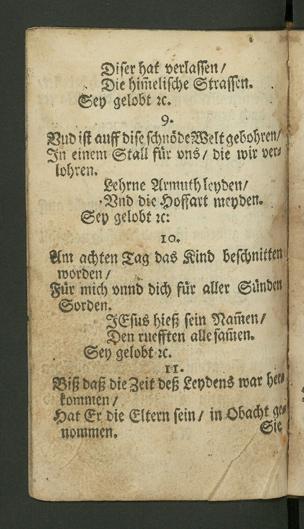 Diser hat verlassen/
Die him̃elische Strassen.
Sey gelobt ꝛc.
9.
Vnd ist auff dise schnöde Welt gebohren/
In einem Stall für vns/ die wir ver-
lohren.
Lehrne Armuth leyden/
Vnd die Hoffart meyden.
Sey gelobt ꝛc:
10.
Am achten Tag das Kind beschnitten
worden/
Für mich vnnd dich für aller Sünden
Sorden.
JEsus hieß sein Nam̃en/
Den ruefften alle sam̃en.
Sey gelobt ꝛc.
11.
Biß daß die Zeit deß Leydens war her-
kommen/
Hat Er die Eltern sein/ in Obacht ge-
nommen.
Sie